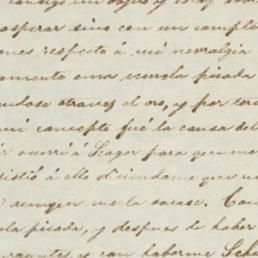 osperar sino con un complet
ones respecto á mi neuralgia
amento una muela picada
ndose atraves el oro, y por con
mi concepto fué la causa del
ir ocurrí á Lagor para que me
ristió á ello diciendome que un
aunque me la sacase. Con
la picada, y despues de haber
urgantes, y con haberme